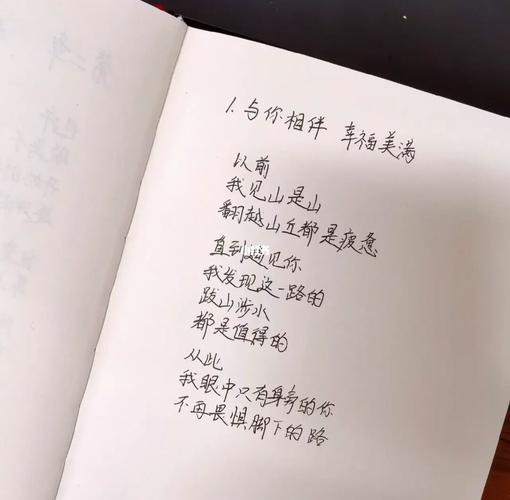 第二章
也许
1.与你相伴 幸福美满
以前
我见山是山
翻越山丘都是疲惫
直到遇见你
我发现这一路的
跋山涉水
都是值得的
从此
我眼中只有身旁的你
不再畏惧脚下的路